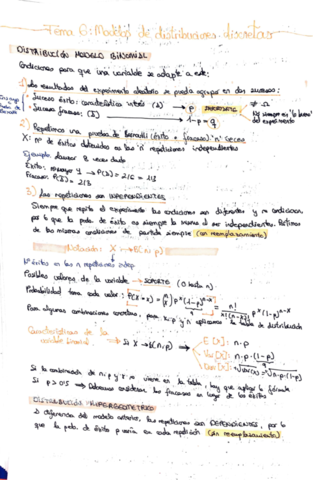 Tema 6: Modelos de distribuciones discretas
DISTRIBUCIÓN MODELO BINOMIAL
Condiciones para que una variable se adapte a este:
1) Los resultados del experimento aleatorio se pueda agrupar en dos sucesos:
Suceso éxito: característica interés (A) → p
Suceso fracaso: (Ā) → 1-p = q
No siempre es "lo bueno" del experimento
2) Repetimos una prueba de Bernoulli (éxito + fracaso) "n" veces
X: nº de éxitos obtenidos en las "n" repeticiones independientes
Ejemplo: lanzar 2 veces dado
3) Las repeticiones son INDEPENDIENTES
Siempre que repito el experimento las condiciones son
por lo que la prob. de éxito es siempre la misma al ser independientes. Partimos
de las mismas condiciones de partida siempre (con reemplazamiento)
Notación: X → B(n,p)
Nº éxitos en las n repeticiones indep.
Posibles valores de la variable → SOPORTE (0 hasta n)
Probabilidad toma cada valor: P(X=x) = (n x) p^x (1-p)^n-x = n! / x!(n-x)! p^x (1-p)^n-x
Para algunas combinaciones concretas, para x, p y n aplicamos la tabla de distribución
Características de la variable binomial
Si X → B(n,p)
E [X]: n·p
Var [X]: n·p·(1-p)
Desv [X]: √Var(X) = √n·p·(1-p)
Si la combinación de n, p y x no viene en la tabla, hay que aplicar la fórmula
Si p > 0'5 → Debemos considerar los fracasos en lugar de los éxitos
DISTRIBUCIÓN HIPERGEOMÉTRICO
A diferencia del modelo anterior, las repeticiones son DEPENDIENTES, por lo
que la prob. de éxito p varía en cada repetición (sin reemplazamiento)